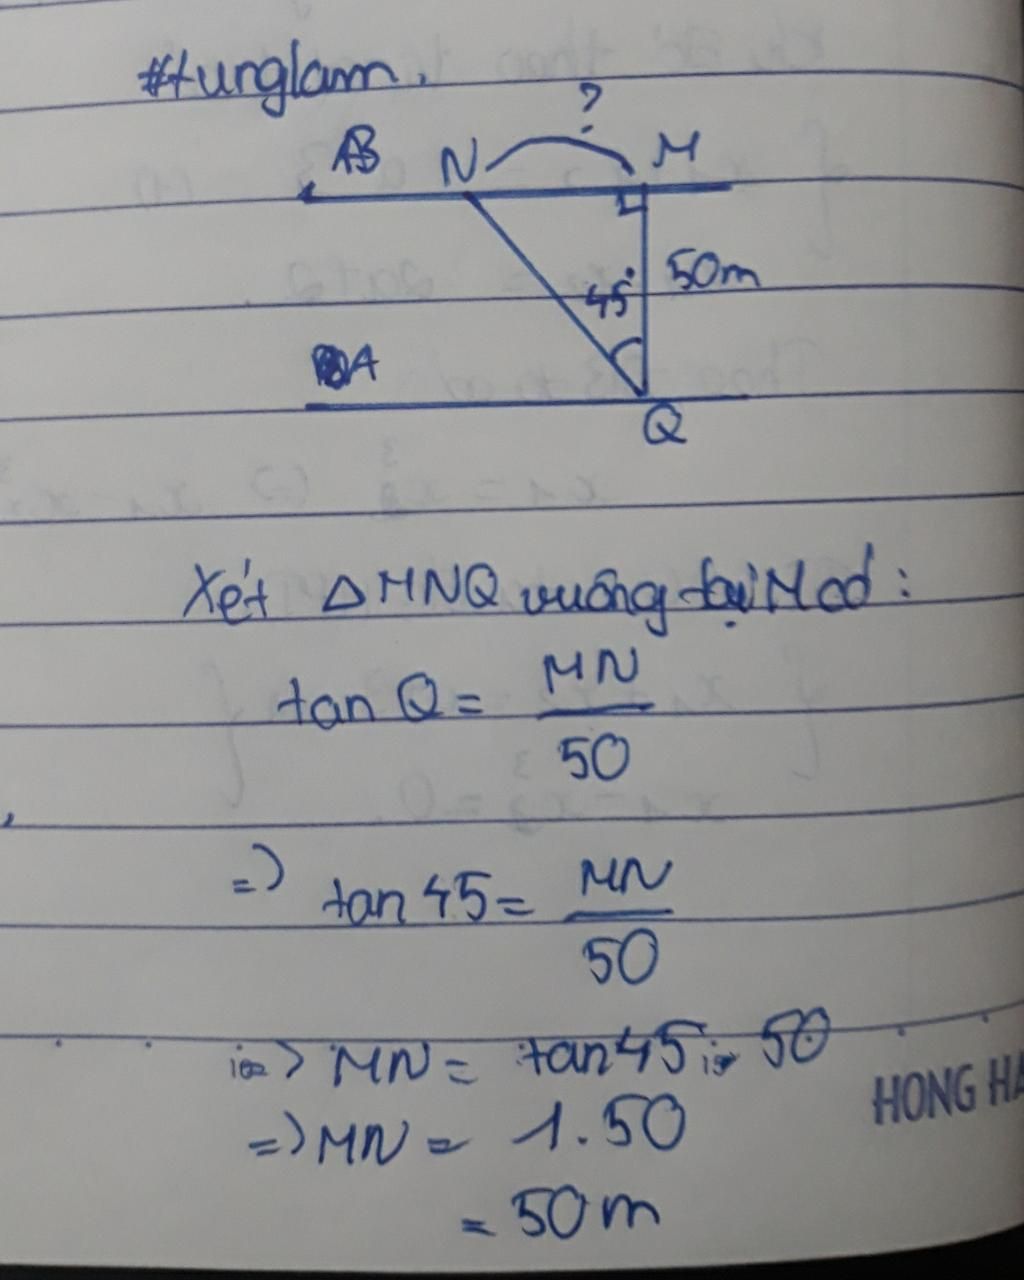 #tunglam.
?
AB N M
45° 50m
A
Q
Xét △MNQ vuông tại M có:
tan Q = MN/50
=> tan 45 = MN/50
=> MN = tan 45 . 50
=> MN = 1.50
= 50m
HONG HA